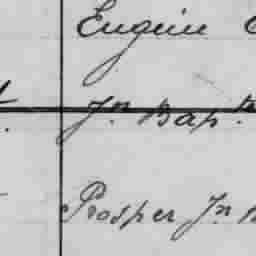 Eugène
Jn Bapte
Prosper Jn